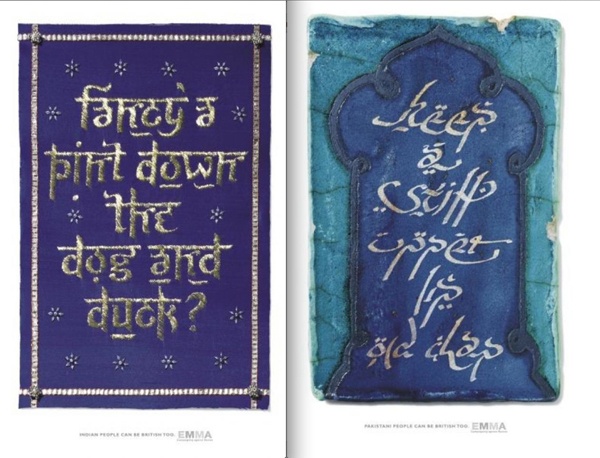 fancy a
pint down
the
dog and
duck?
INDIAN PEOPLE CAN BE BRITISH TOO. EMMA
keep
a
stiff
upper
lip
old chap
PAKISTANI PEOPLE CAN BE BRITISH TOO. EMMA